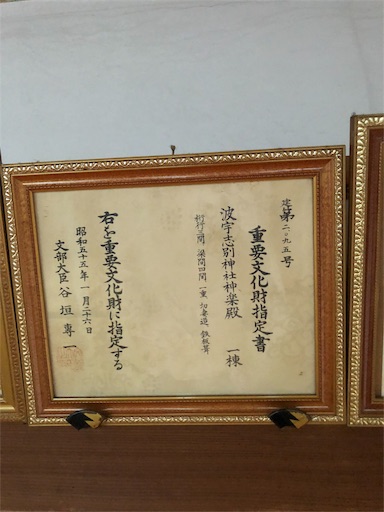 建第二〇九五号
重要文化財指定書
波宇志別神社神楽殿 一棟
桁行三間 梁間四間 一重 切妻造 鉄板葺
右を重要文化財に指定する
昭和五十五年一月二十六日
文部大臣 谷垣專一